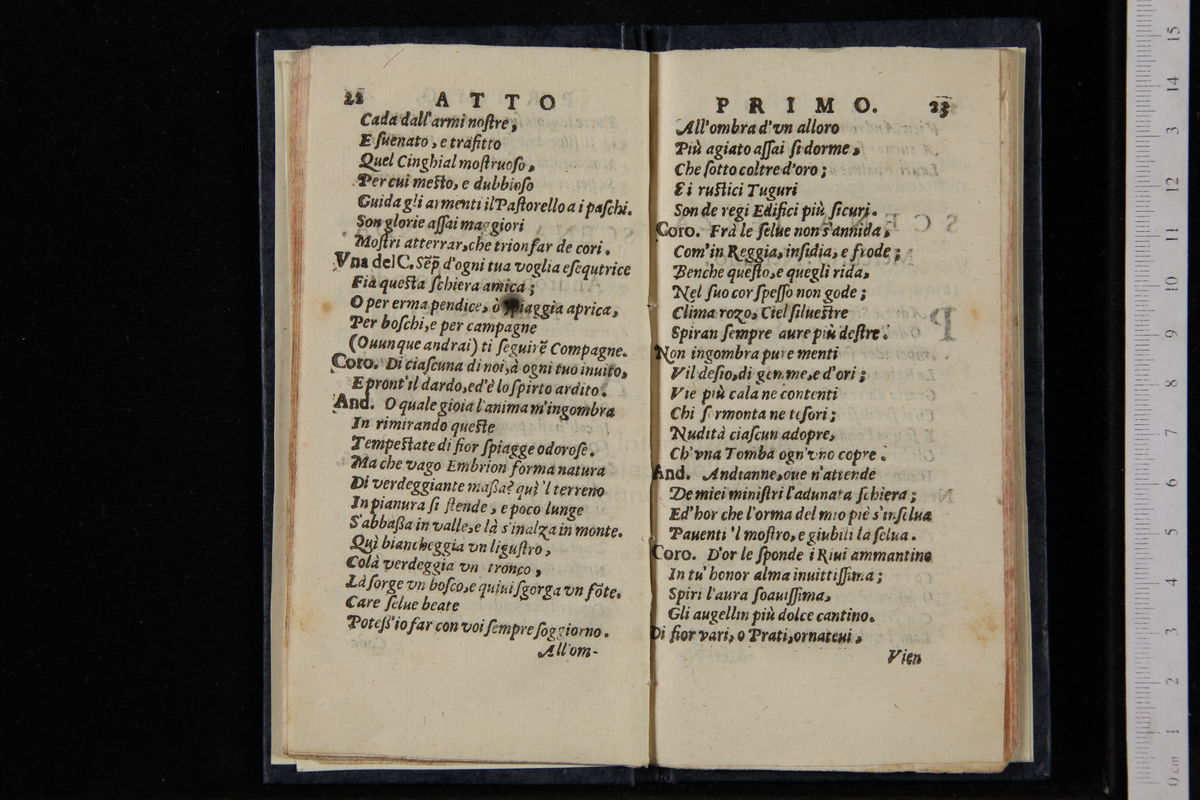 22 ATTO
Cada dall'armi noſtre,
E ſuenato, e trafitto
Quel Cinghial moſtruoſo,
Per cui meſto, e dubbioſo
Guida gli armenti il Paſtorello a i paſchi.
Son glorie aſſai maggiori
Moſtri atterrar, che trionfar de cori.
Vna del C. Sẽp d'ogni tua voglia eſequtrice
Fia queſta ſchiera amica;
O per erma pendice, ò ſpiaggia aprica,
Per boſchi, e per campagne
(Ouunque andrai) ti ſeguirẽ Compagne.
Coro. Di ciaſcuna di noi, à ogni tuo inuito,
E pront'il dardo, ed'è lo ſpirto ardito.
And. O quale gioia l'anima m'ingombra
In rimirando queſte
Tempeſtate di fior ſpiagge odoroſe.
Ma che vago Embrion forma natura
Di verdeggiante maßa? quì 'l terreno
In pianura ſi ſtende, e poco lunge
S'abbaßa in valle, e là s'inalza in monte.
Quì biancheggia vn liguſtro,
Colà verdeggia vn tronco,
Là ſorge vn boſco, e quiui ſgorga vn fõte.
Care ſelue beate
Poteß'io far con voi ſempre ſoggiorno.
All'om-
PRIMO. 23
All'ombra d'vn alloro
Più agiato aſſai ſi dorme,
Che ſotto coltre d'oro;
E i ruſtici Tuguri
Son de regi Edifici più ſicuri.
Coro. Frà le ſelue non s'annida,
Com'in Reggia, inſidia, e frode;
Benche queſto, e quegli rida,
Nel ſuo cor ſpeſſo non gode;
Clima rozo, Ciel ſilueſtre
Spiran ſempre aure più deſtre.
Non ingombra pure menti
Vil deſio, di gemme, e d'ori;
Vie più cala ne contenti
Chi ſormonta ne teſori;
Nudità ciaſcun adopre,
Ch'vna Tomba ogn'vno copre.
And. Andianne, oue n'attende
De miei miniſtri l'adunata ſchiera;
Ed'hor che l'orma del mio piè s'inſelua
Pauenti 'l moſtro, e giubili la ſelua.
Coro. D'or le ſponde i Riui ammantino
In tu' honor alma inuittiſſima;
Spiri l'aura ſoauiſſima,
Gli augellin più dolce cantino.
Di fior vari, o Prati, ornateui,
Vien